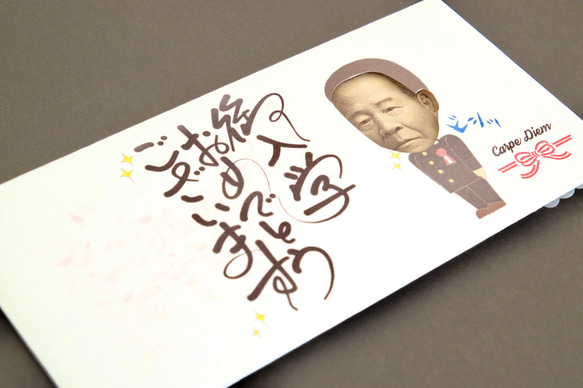 御入学
おめでとう
ございます
ビシッ
Carpe Diem